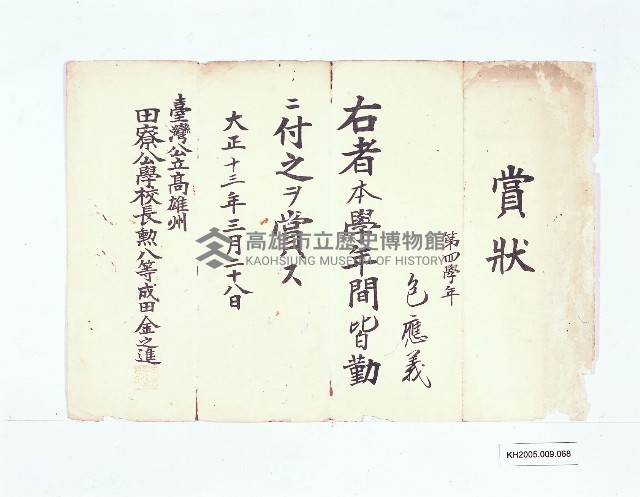 賞狀
第四學年
包應義
右者本學年間皆勤
ニ付之ヲ賞ス
大正十三年三月二十八日
臺灣公立高雄州
田寮公學校長勲八等成田金之進
高雄市立歷史博物館
KAOHSIUNG MUSEUM OF HISTORY
KH2005.009.068